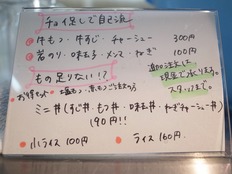 チョイ足しで自己流
牛もつ・牛すじ・チャーシュー 300円
岩のり・味玉・メンマ・ねぎ 100円
もの足りない!?
追加注文は
現金で承ります。
スタッフまで。
お得セット
ミニ丼(すじ丼・もつ丼・味玉丼・ねぎチャーシュー丼)
190円!!
小ライス100円
ライス160円